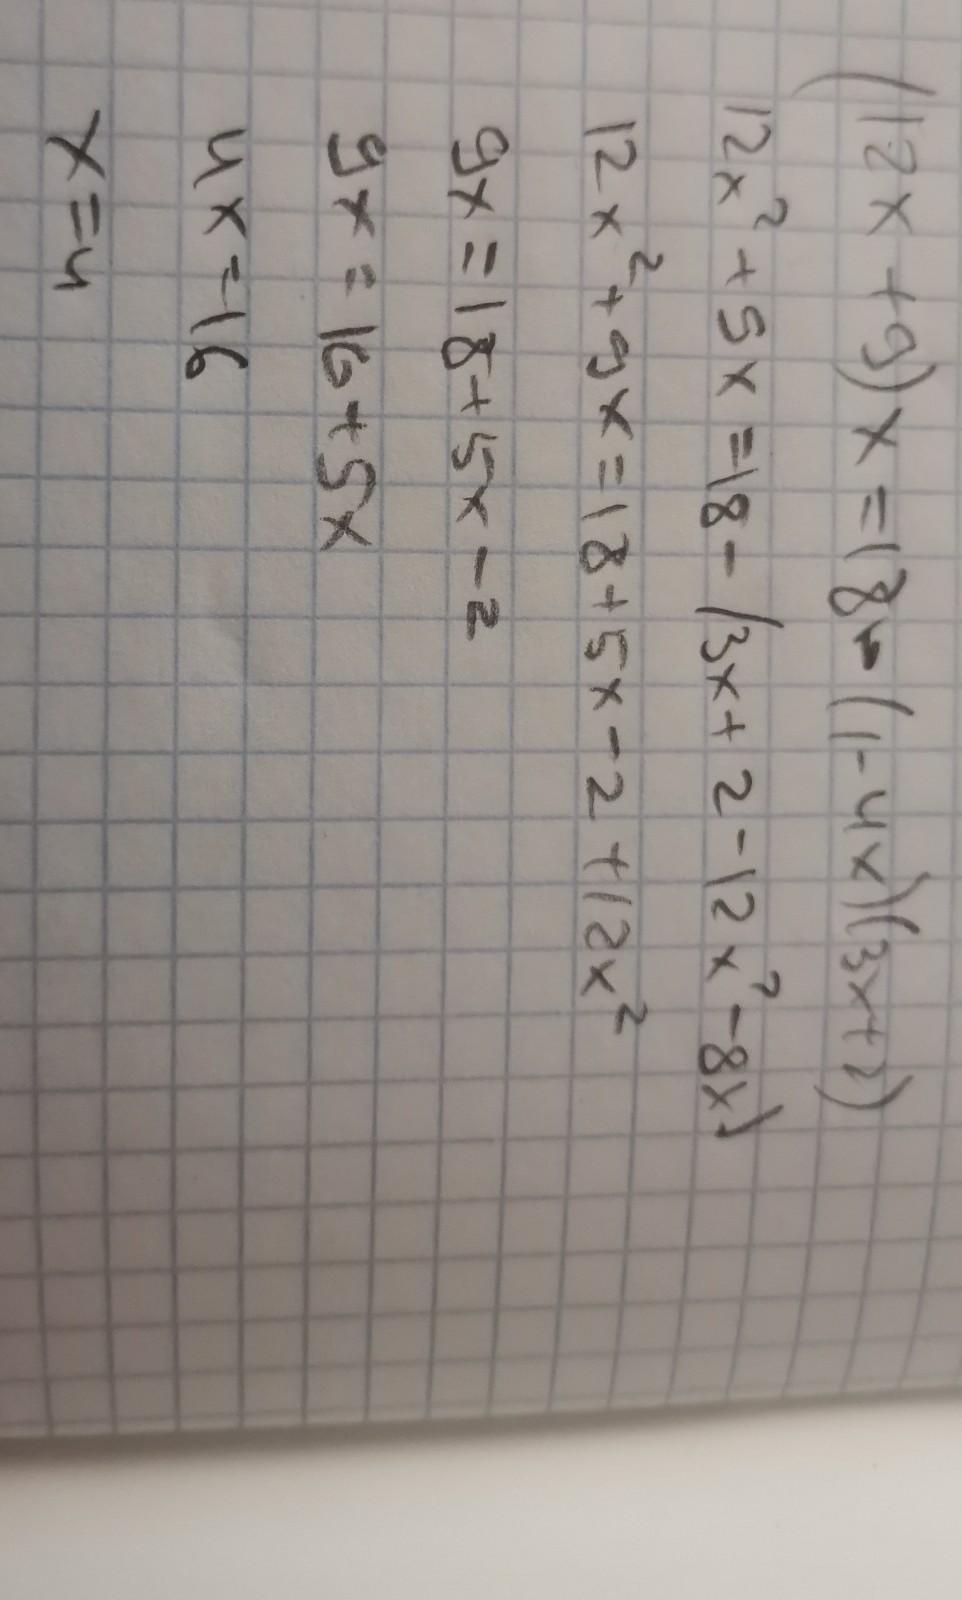 (12x+9)x=18-(1-4x)(3x+2)
12x²+5x=18-(3x+2-12x²-8x)
12x²+9x=18+5x-2+12x²
9x=18+5x-2
9x=16+5x
4x=16
x=4